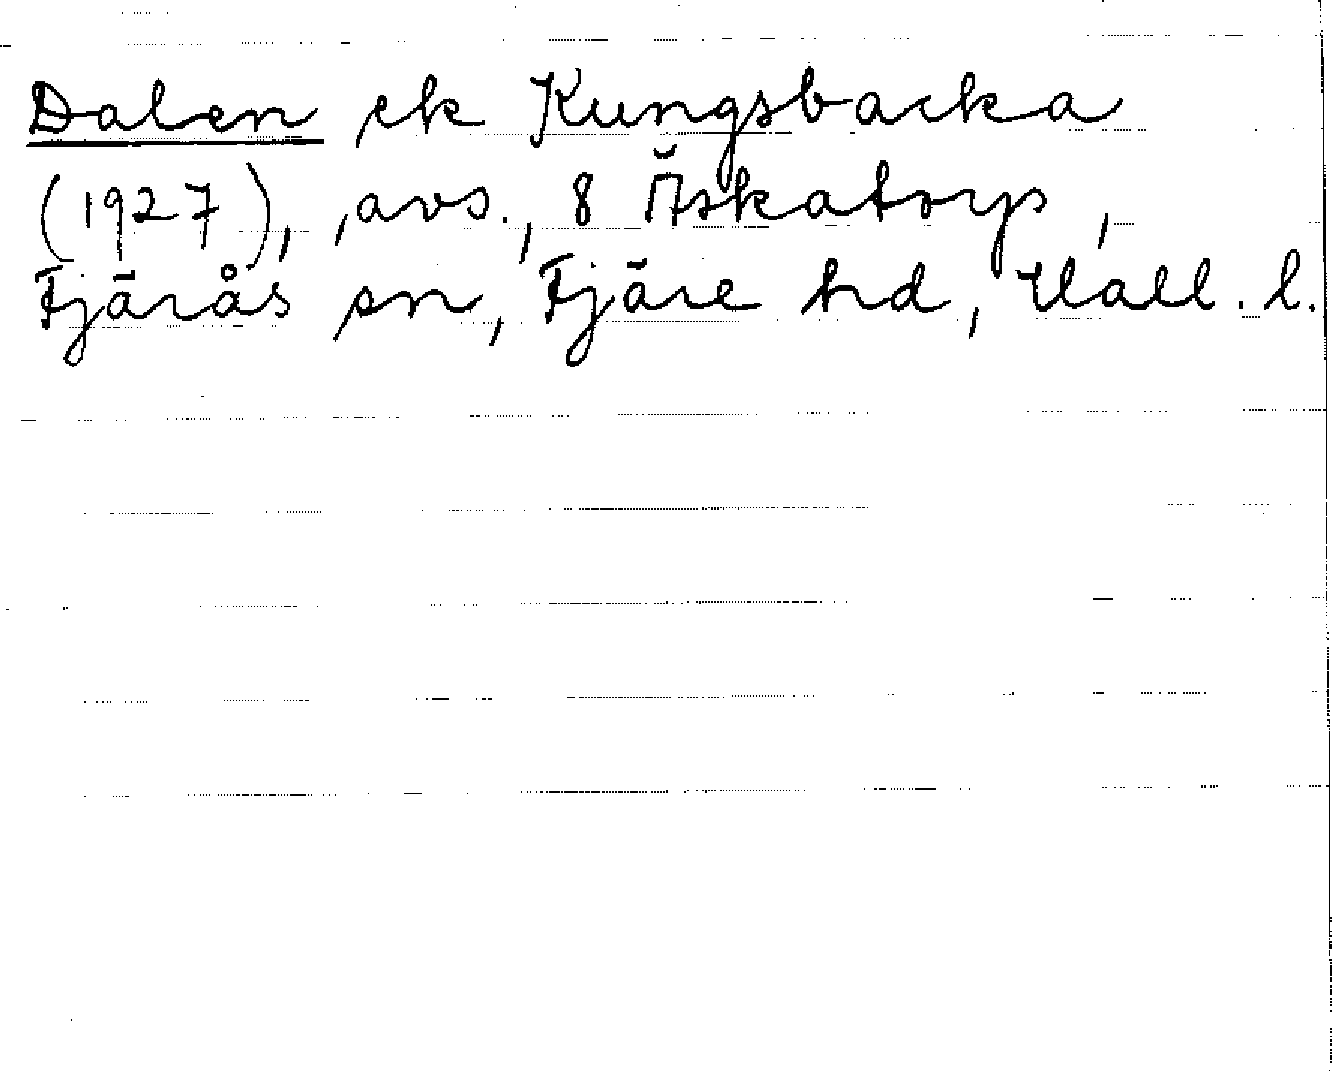 Dalen ek Kungsbacka
(1927), avs., 8 Äskatorp,
Fjärås sn, Fjäre hd, Hall. l.